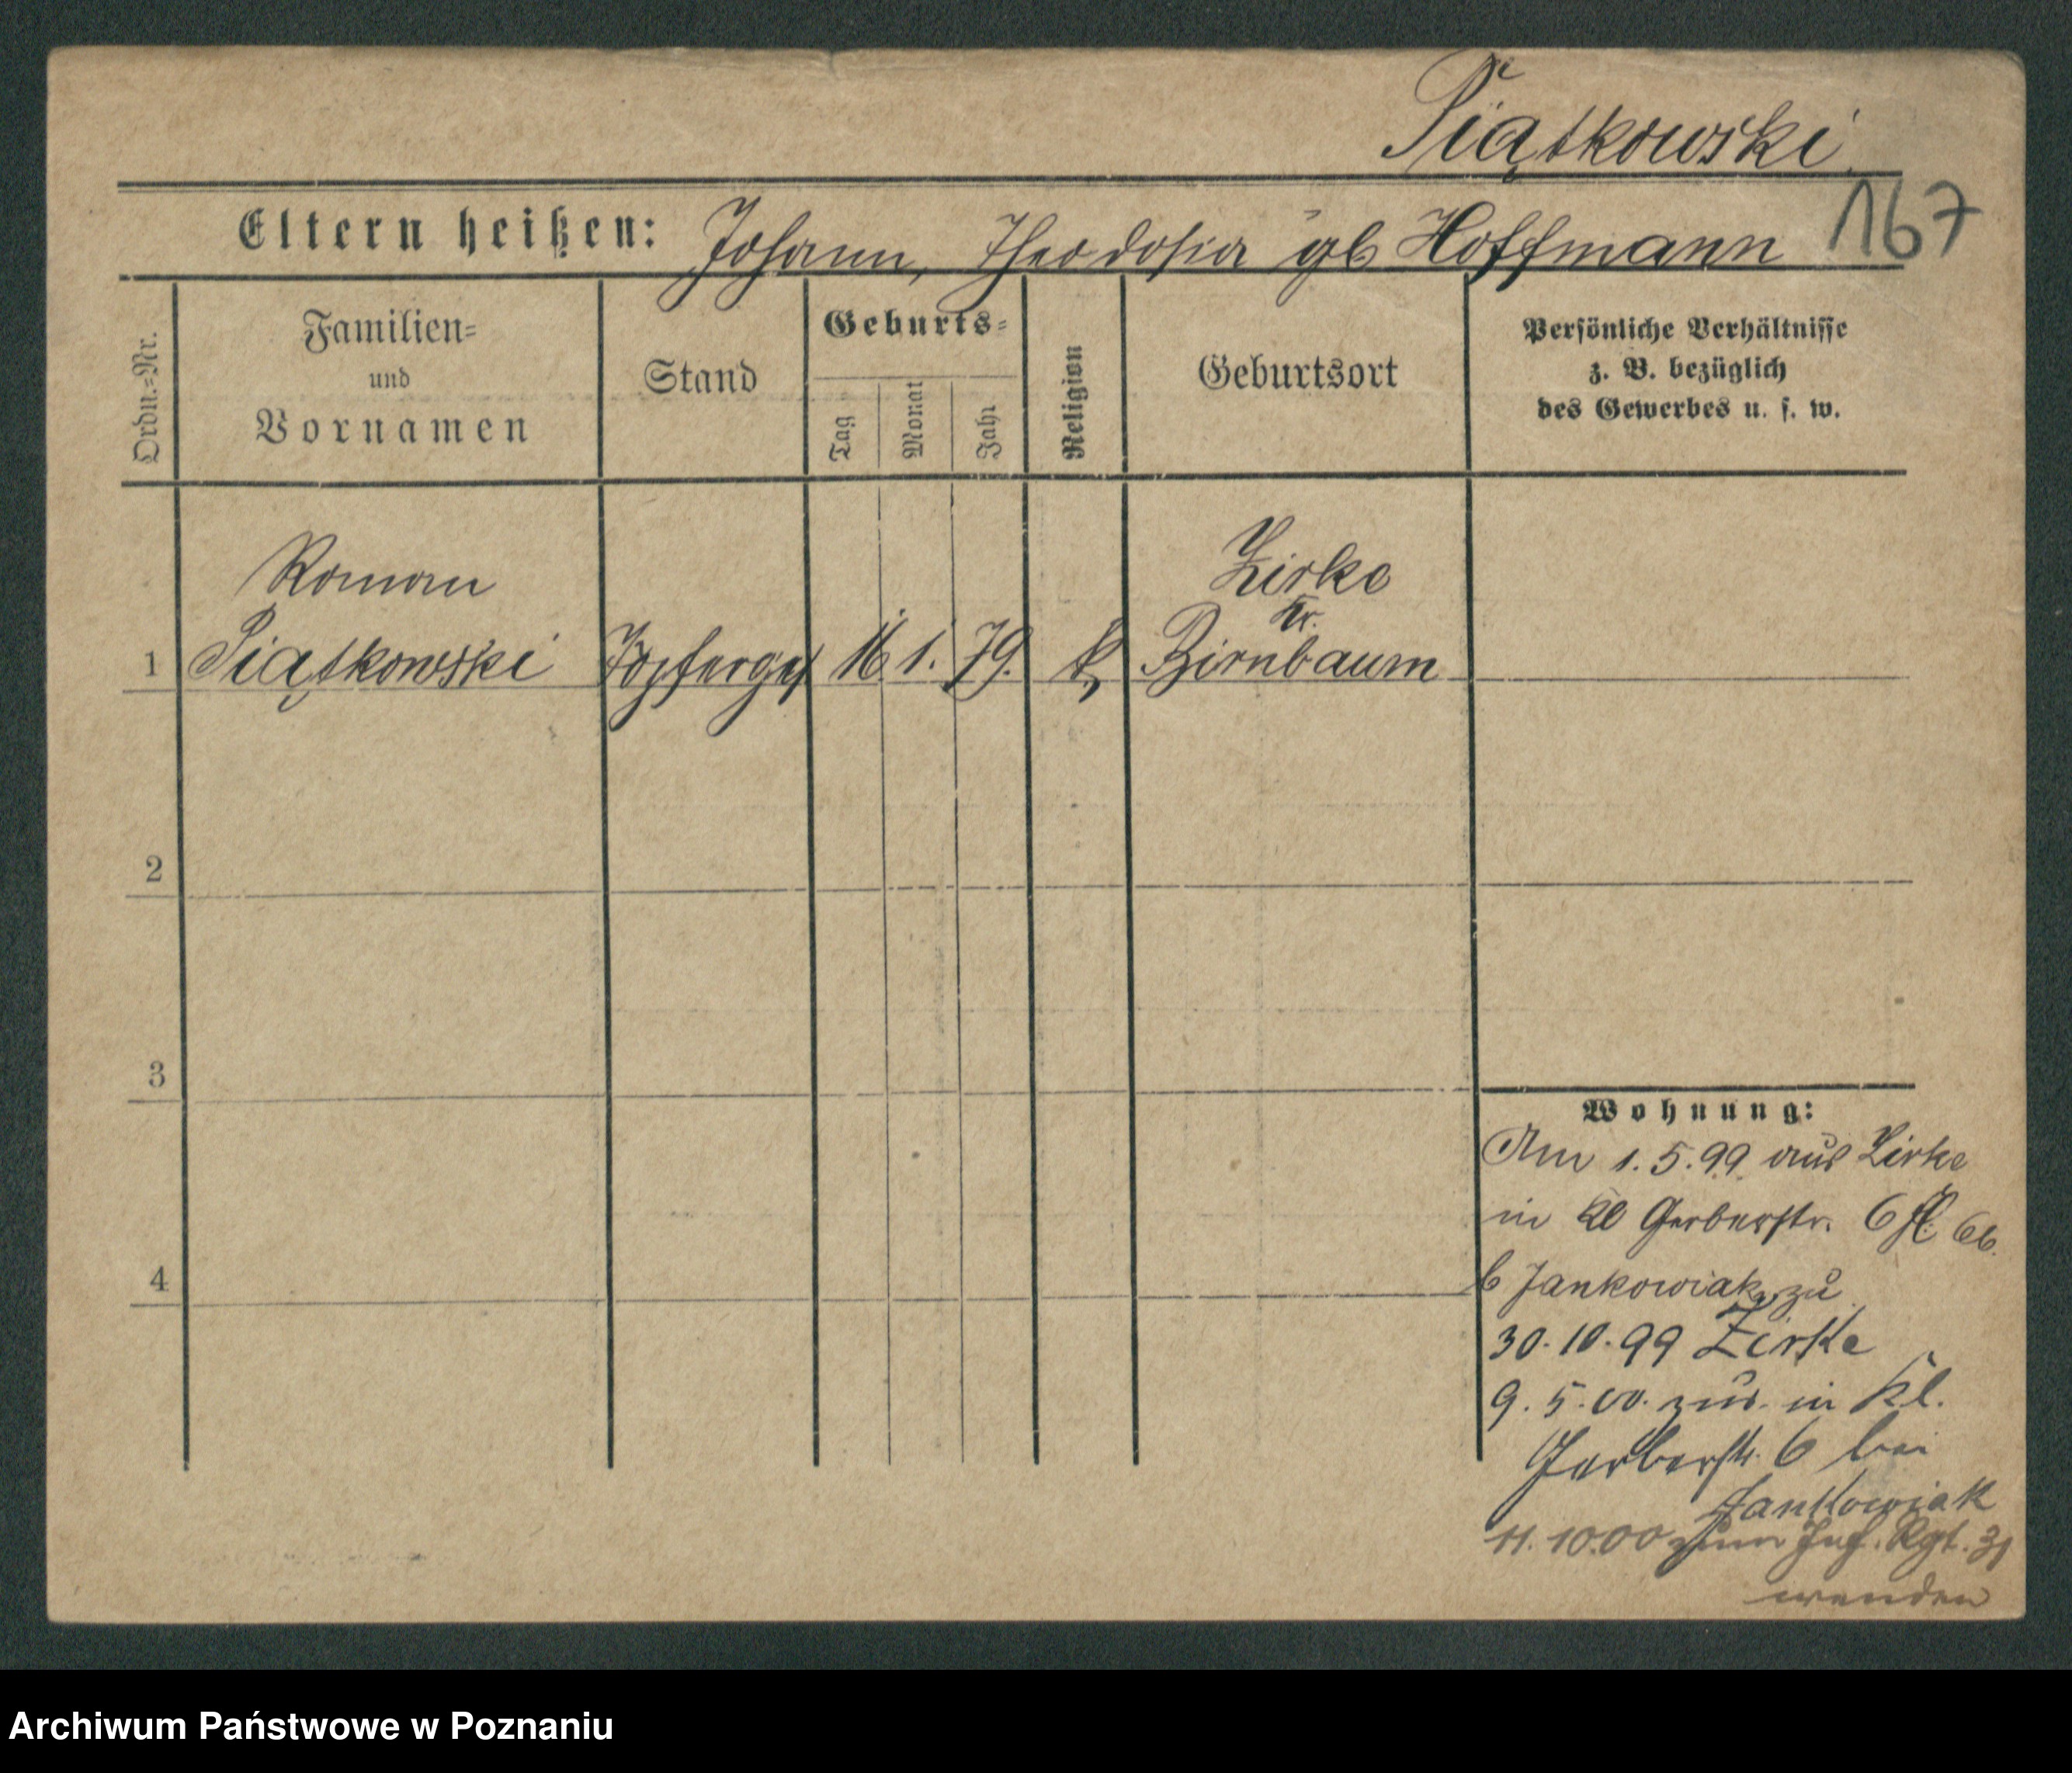 Piątkowski
Eltern heißen: Johann, Theodosia gb Hoffmann 167
Ordn.=Nr.
Familien=
und
Vornamen
Stand
Geburts=
Tag
Monat
Jahr
Religion
Geburtsort
Persönliche Verhältnisse
z. B. bezüglich
des Gewerbes u. s. w.
Roman
Zirke
Kr.
1 Piątkowski Töpferges 16 1. 79. k. Birnbaum
2
3
4
Wohnung:
Am 1.5.99 aus Zirke
in Kl Gerberstr. 6
b Jankowiak zu
30.10.99 Zirke
9.5.00. zur. in Kl.
Gerberstr. 6 bei
Jankowiak
11.10.00 zum Inf. Rgt. 31
wenden
Archiwum Państwowe w Poznaniu